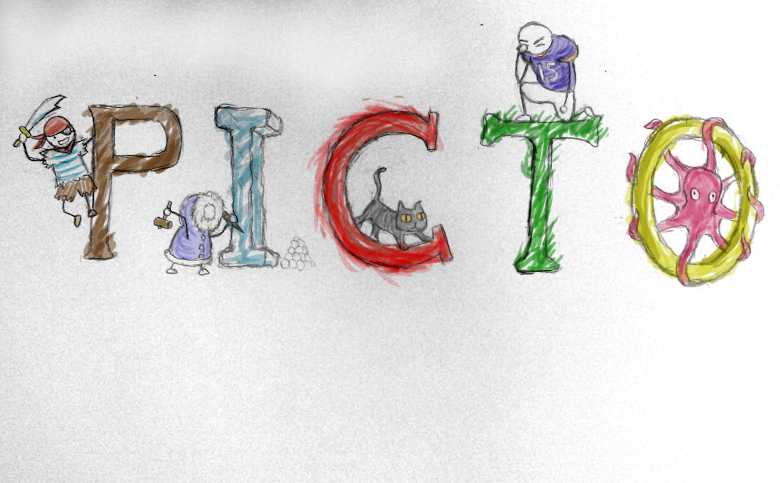 PICTO
15